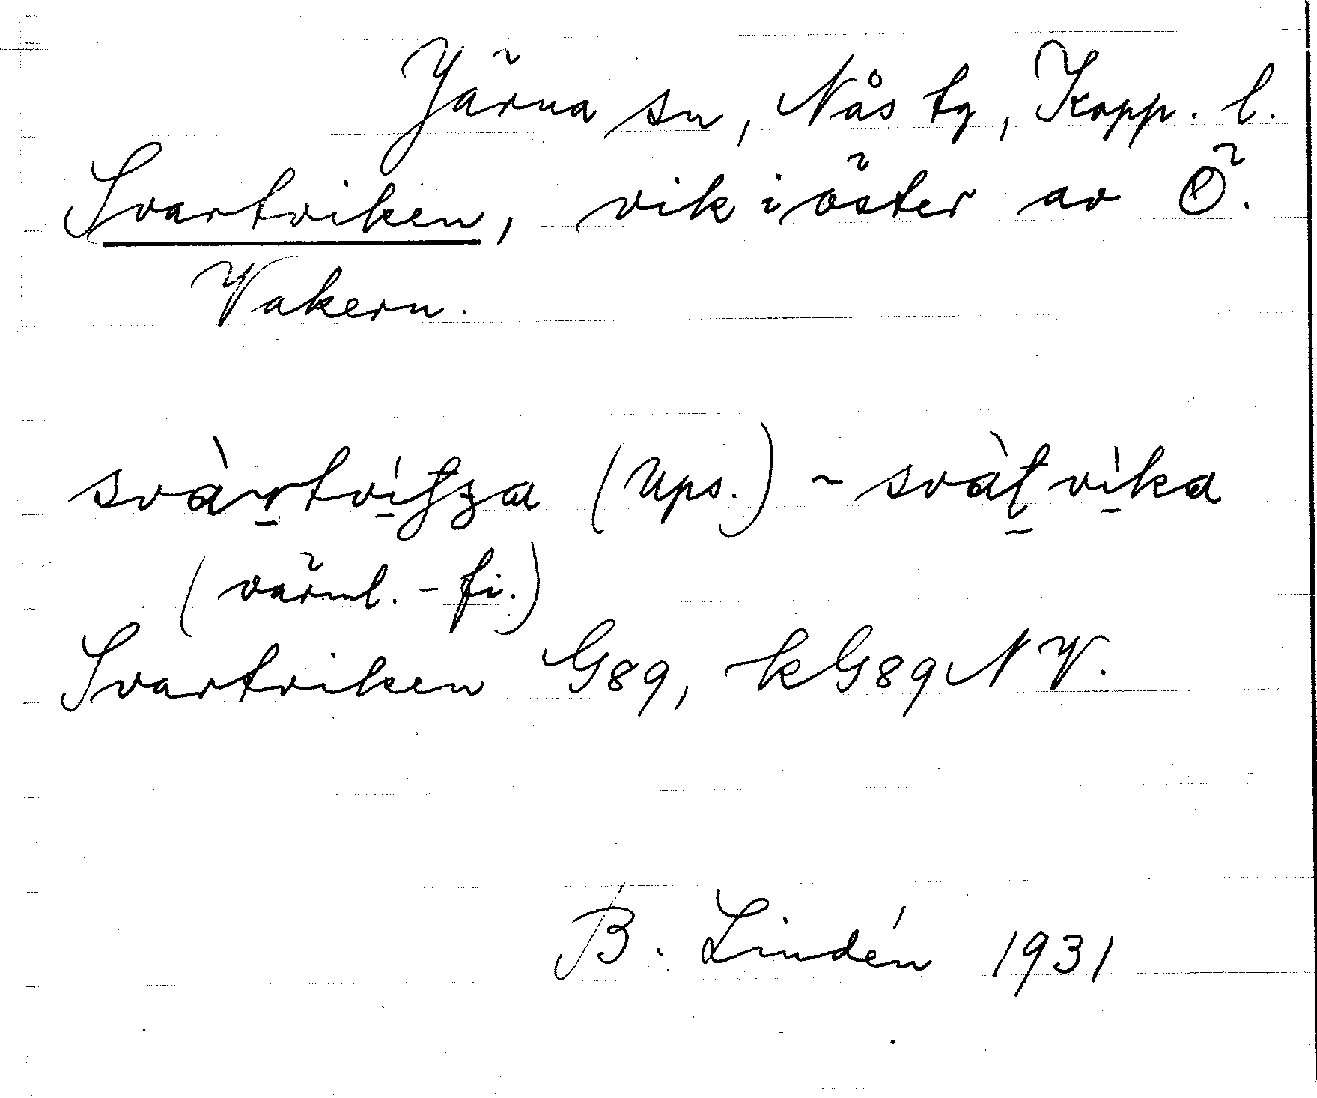 Järna sn, Nås tg, Kopp. l.
Svartviken, vik i öster av Ö.
Vakern.
(Ups.) ~
(värml.-fi.)
Svartviken G89, kG89NV.
B. Lindén 1931